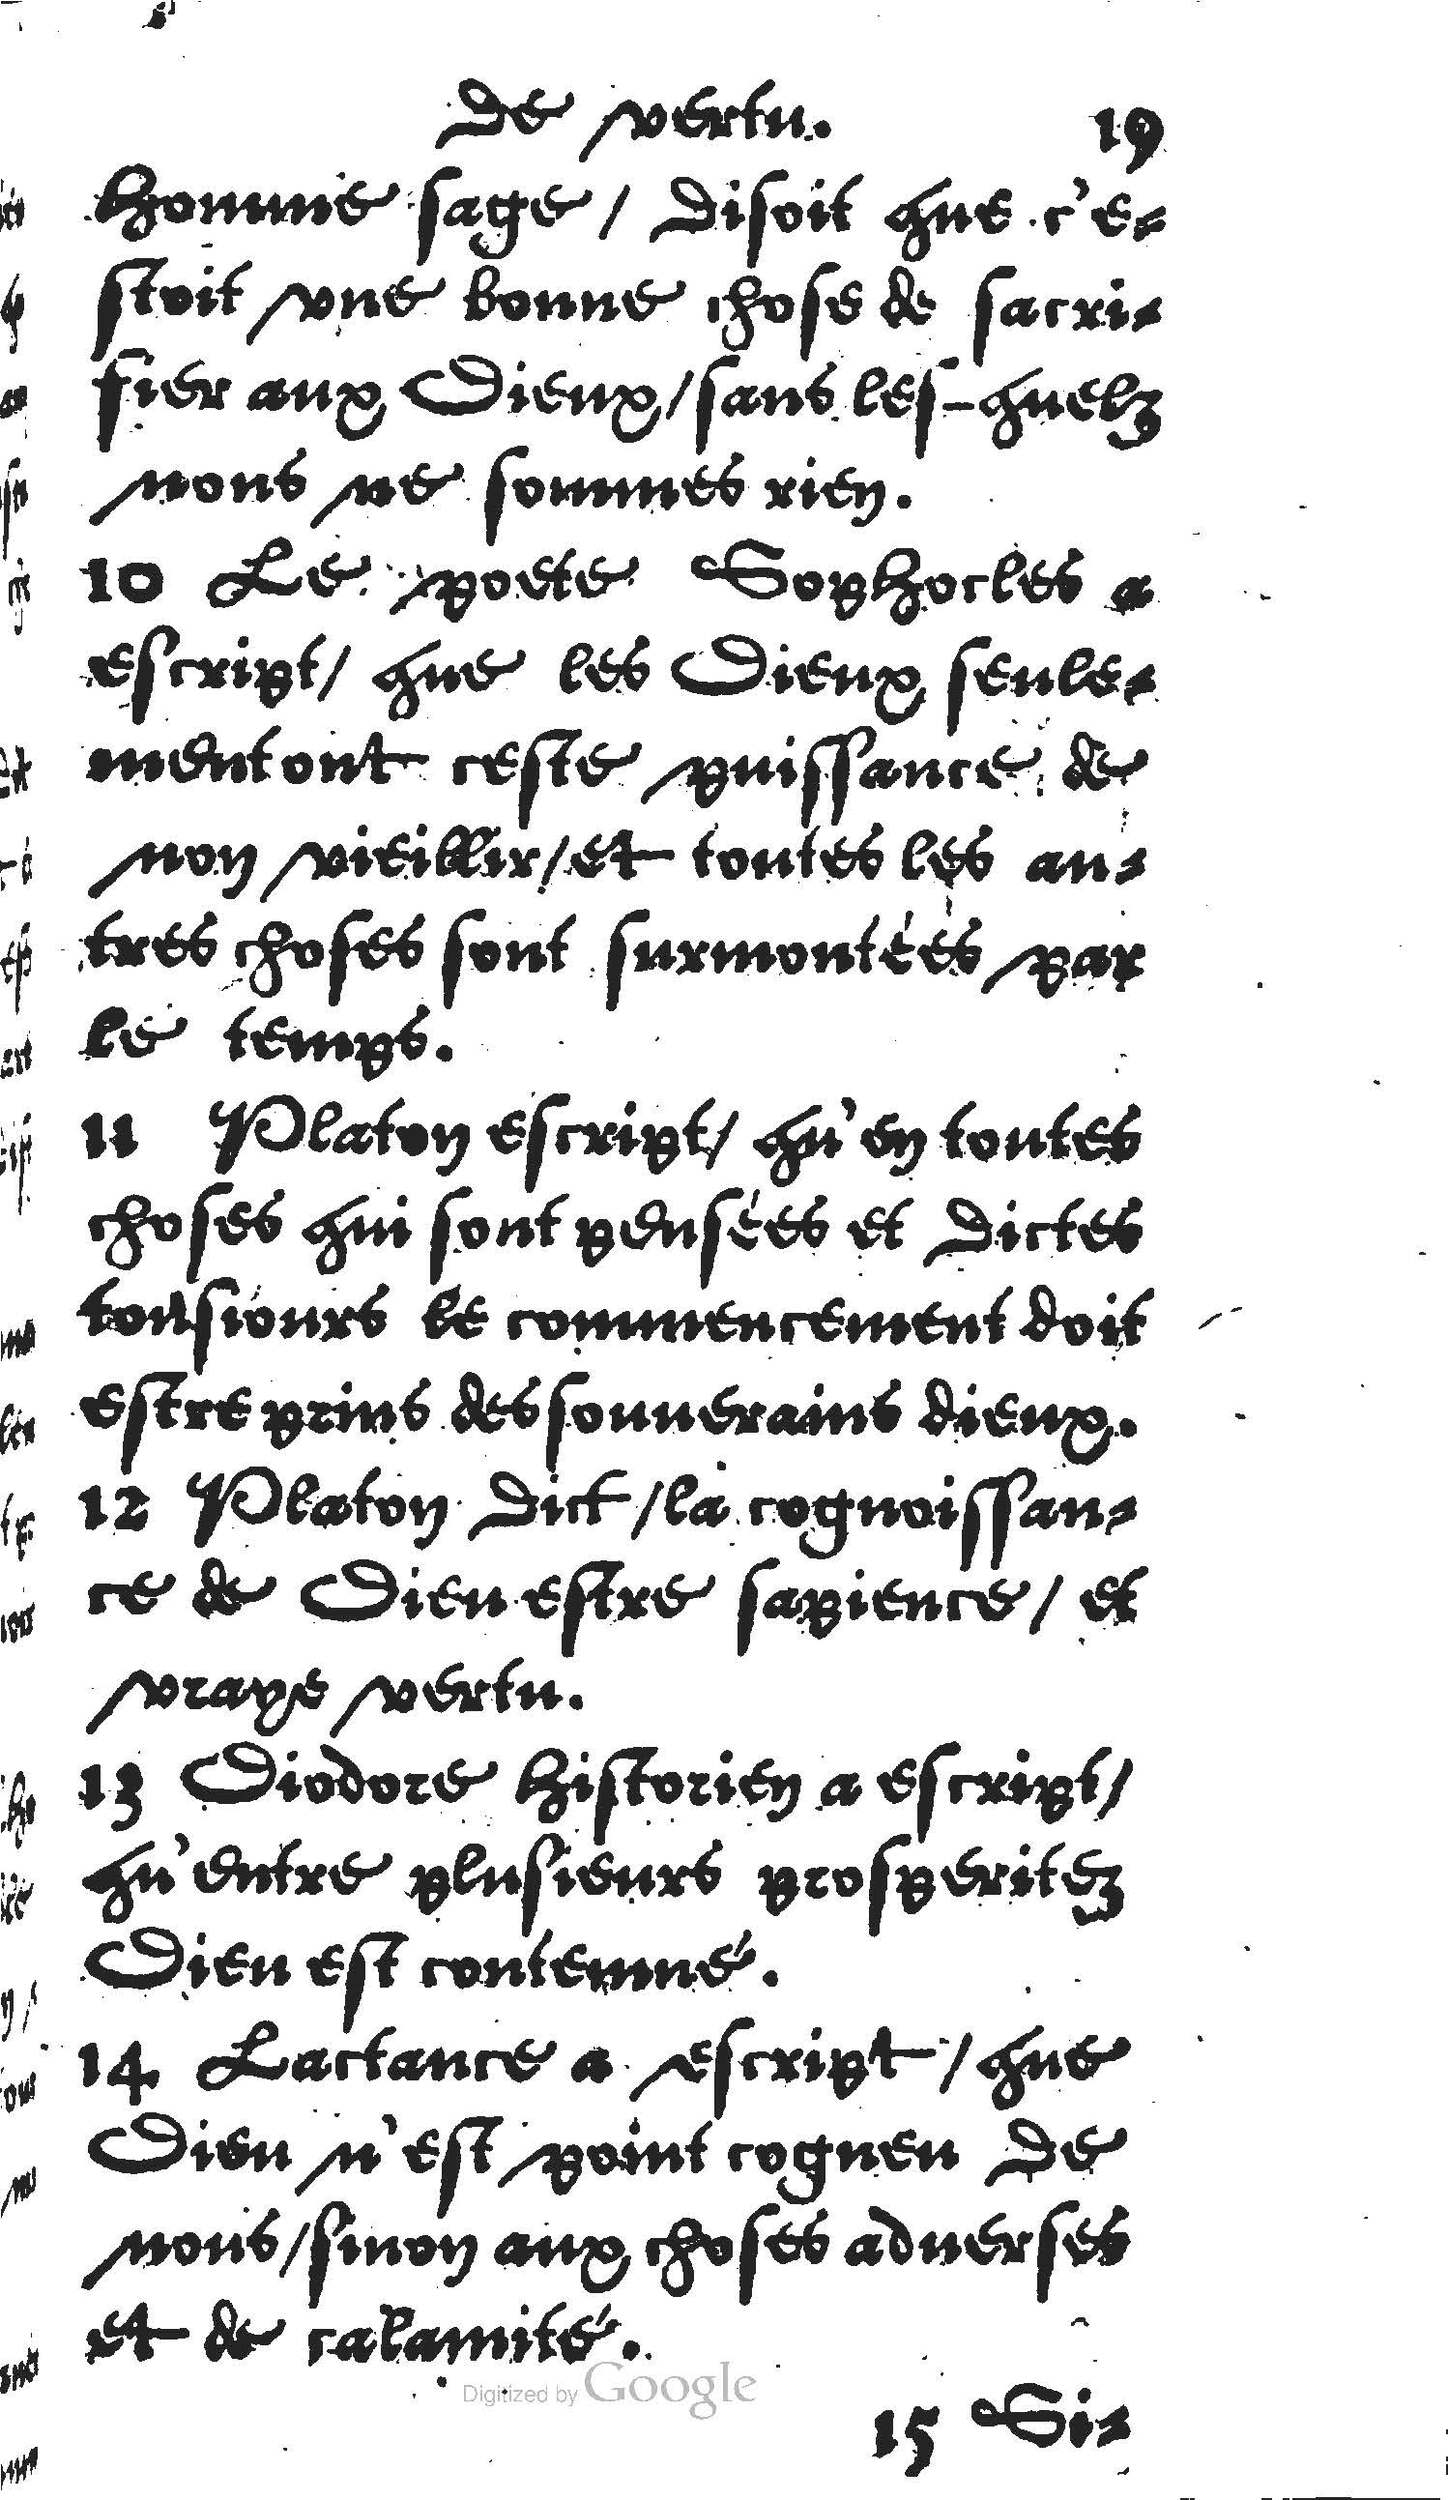 De vertu. 19
homme sage / disoit que c'e-
stoit vne bonne chose de sacri-
fier aux Dieux / sans les-quelz
nous ne sommes rien.
10 Le poete Sophocles a
escript / que les Dieux seule-
ment ont ceste puissance de
non vieillir / et toutes les au-
tres choses sont surmontées par
le temps.
11 Platon escript / qu'en toutes
choses qui sont pensées et dictes
tousiours le commencement doit
estre prins des souuerains dieux.
12 Platon dict / la cognoissan-
ce de Dieu estre sapience / et
vraye vertu.
13 Diodore historien a escript /
qu'entre plusieurs prosperitez
Dieu est contemné.
14 Lactance a escript / que
Dieu n'est point cogneu de
nous / sinon aux choses aduerses
et de calamité.
Digitized by Google
15 Si-